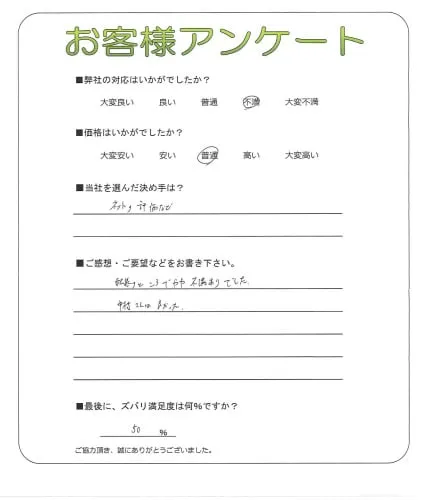 お客様アンケート
■弊社の対応はいかがでしたか？
大変良い 良い 普通 不満 大変不満
■価格はいかがでしたか？
大変安い 安い 普通 高い 大変高い
■当社を選んだ決め手は？
ネットの評価など
■ご感想・ご要望などをお書き下さい。
ところでやや不満ありでした。
さんは良かった
■最後に、ズバリ満足度は何％ですか？
50 ％
ご協力頂き、誠にありがとうございました。